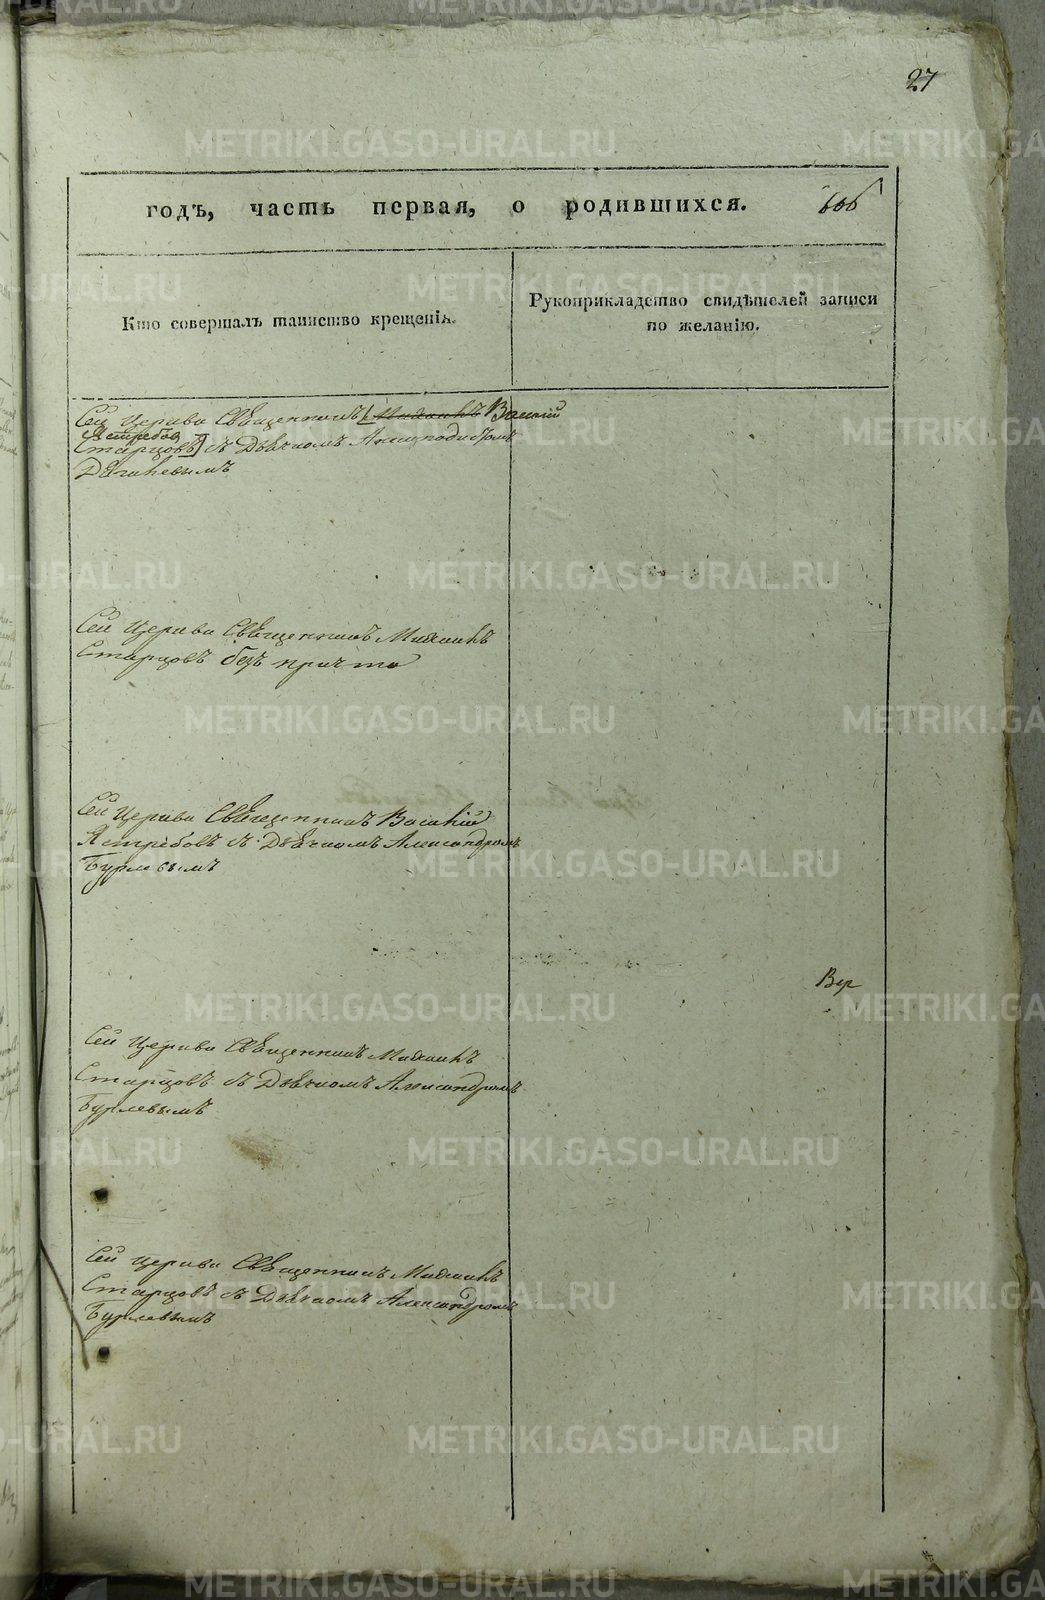 27
годъ, часть первая, о родившихся. 606
Кто совершалъ таинство крещенія.
Рукоприкладство свидѣтелей записи
по желанію.
Сей Церкви Священникъ Михаилъ Василій
Ястребов
Старцовъ съ Дьячкомъ
Сей Церкви Священникъ Михаилъ
Старцовъ безъ причта
Сей Церкви Священникъ Василій
Ястребовъ съ Дьячкомъ Александромъ
Бурлевымъ
Вер
Сей Церкви Священникъ Михаилъ
Старцовъ съ Дьячкомъ Александромъ
Бурлевымъ
Сей Церкви Священникъ Михаилъ
Старцовъ съ Дьячкомъ Александромъ
Бурлевымъ
METRIKI.GASO-URAL.RU